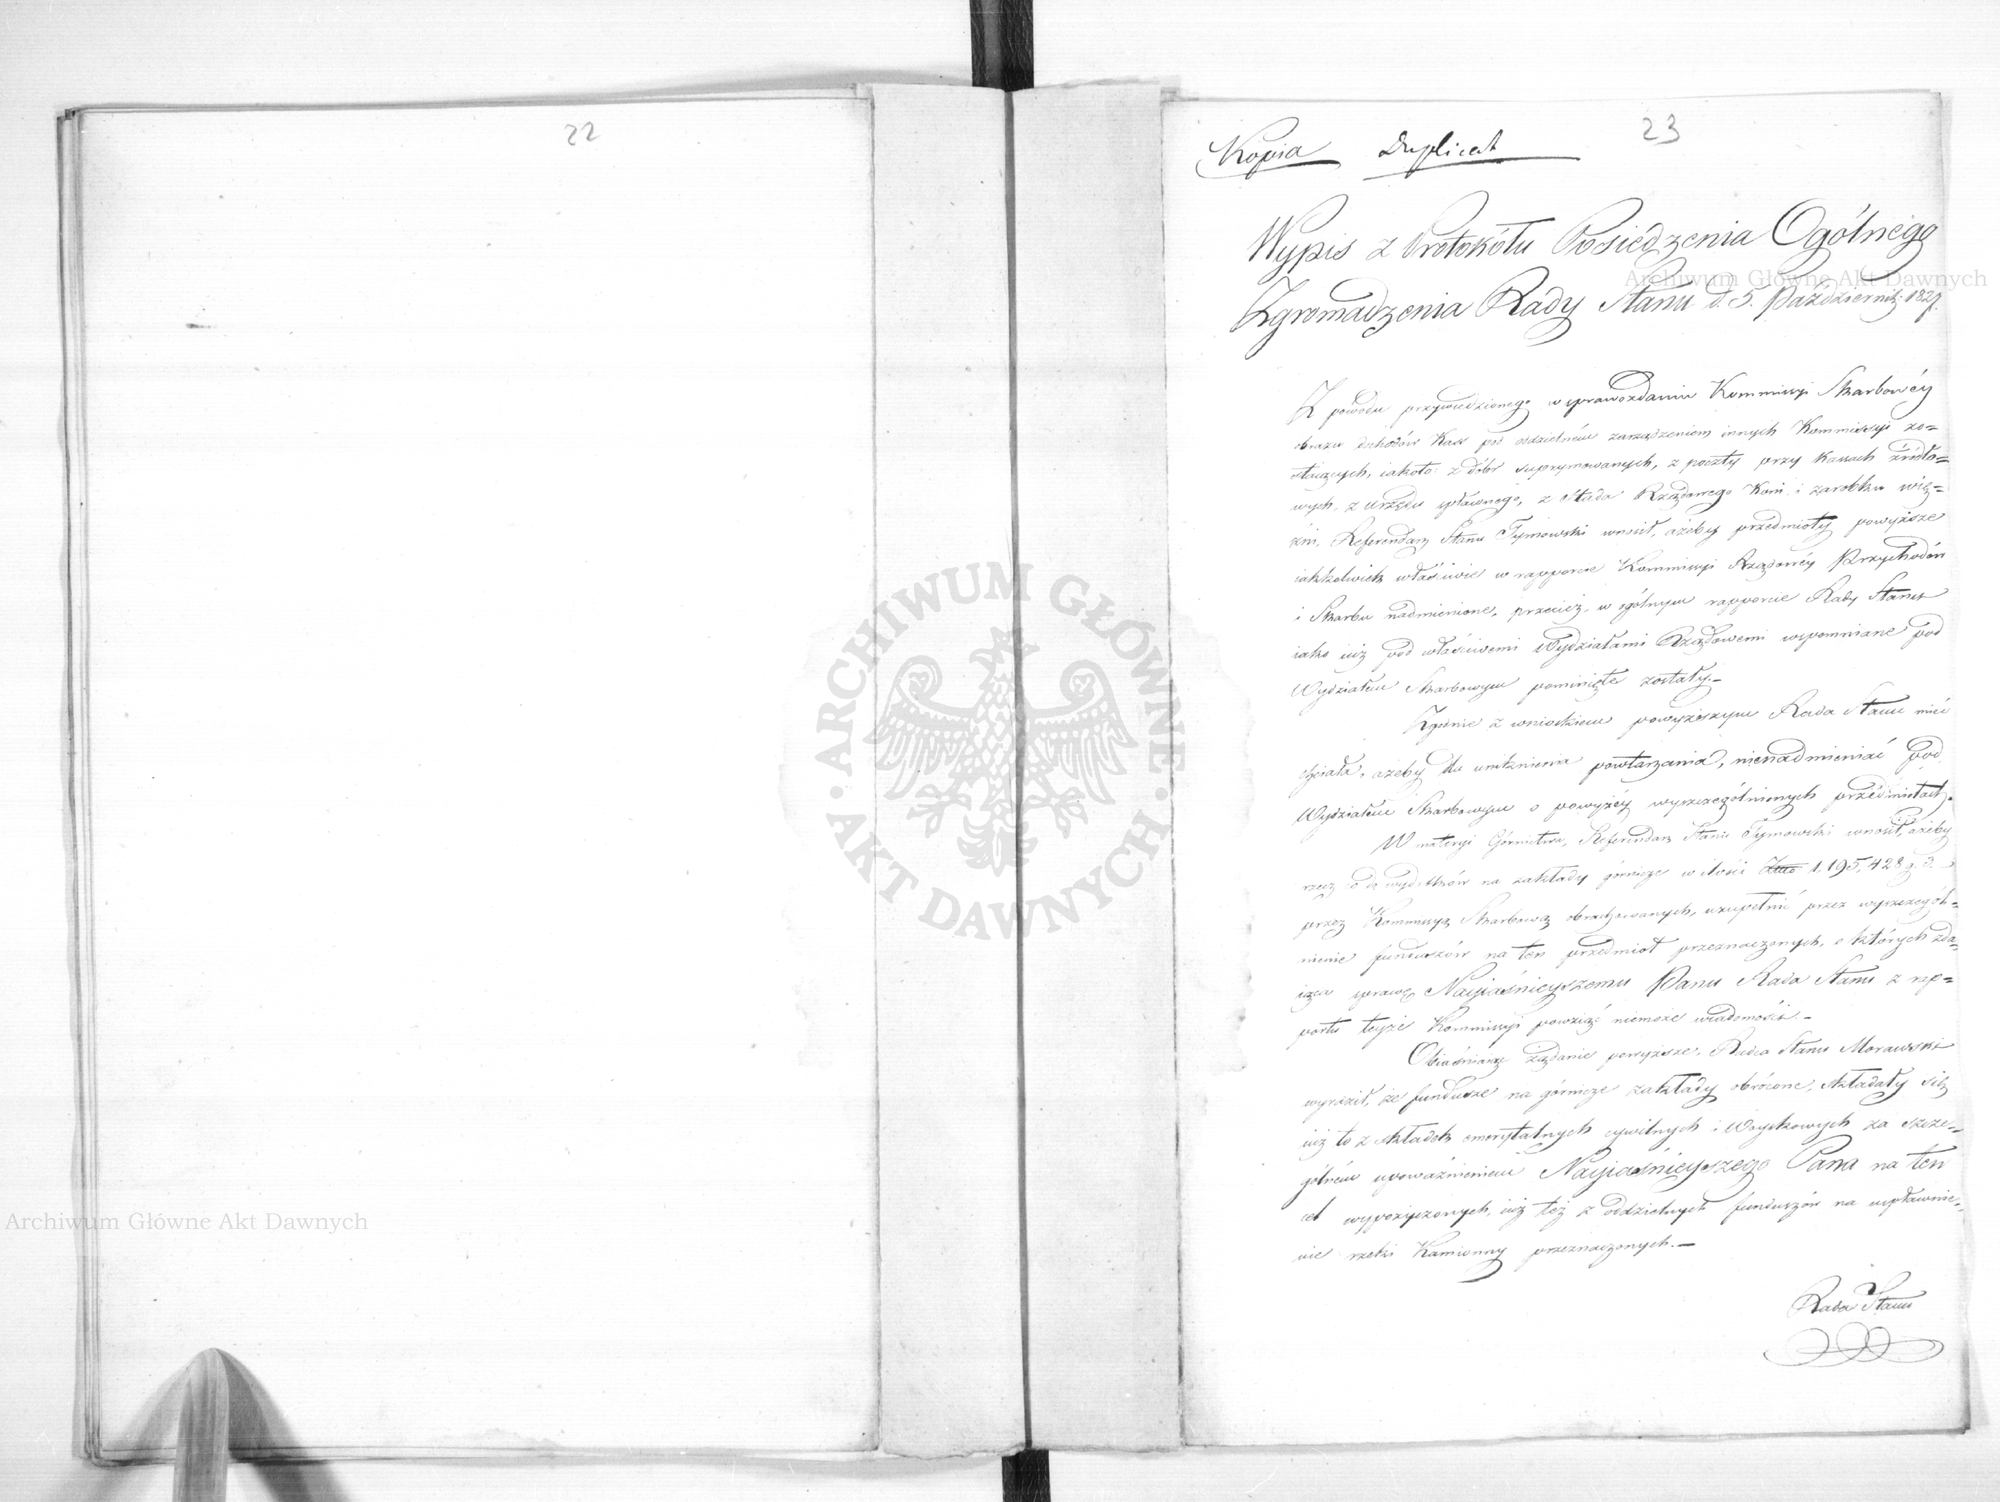 22
23
Kopia Duplicat
Wypis z Protokółu Posiedzenia Ogólnego
Zgromadzenia Rady Stanu d. 5. Październik: 1827.
Z powodu przywiedzionego w sprawozdaniu Kommissyi Skarbowéy
obrazu dochodów Kass pod oddzielném zarządzeniem innych Kommissyi zo=
staiących, iakoto: z dóbr suprymowanych, z poczty przy Kassach źródło=
wych, z urzędu spławnego, z Stada Rządowego Koni i zarobku wię=
źni, Referendarz Stanu Tymowski wnosił, ażeby przedmioty powyższe
iakkolwiek właściwie w rapporcie Kommissyi Rządowéy Przychodów
i Skarbu nadmienione, przecież w ogólnym rapporcie Rady Stanu
iako iuż pod właściwemi Wydziałami Rządowemi wspomniane pod
Wydziałem Skarbowym pominięte zostały.–
Zgodnie z wnioskiem powyższym Rada Stanu mieć
chciała, ażeby dla uniknienia powtarzania, nienadmieniać pod
Wydziałem Skarbowym o powyżéy wyszczególnionych przedmiotach.
W materyi Górnictwa, Referendarz Stanu Tymowski wnosił, ażeby
rzecz o wydatków na zakłady górnicze w ilości 1.195,428 g.
przez Kommissyą Skarbową obrachowanych, uzupełnić przez wyszczegól=
nienie funduszów na ten przedmiot przeznaczonych, o których zda=
iąca sprawę Nayiaśnieyszemu Panu Rada Stanu z rap=
portu teyże Kommissyi powziąć niemoże wiadomości.–
Obiaśniaiąc żądanie powyższe, Radca Stanu Morawski
wyraził, że fundusze na górnicze zakłady obrócone, składały się
iuż to z składek emerytalnych cywilnych i Woyskowych za szcze=
gólném upoważnieniem Nayiaśnieyszego Pana na ten
cel wypożyczonych, iuż też z oddzielnych funduszów na uspławnie=
nie rzeki Kamionny przeznaczonych.–
Rada Stanu
Archiwum Główne Akt Dawnych
Archiwum Główne Akt Dawnych
ARCHIWUM GŁÓWNE · AKT DAWNYCH ·